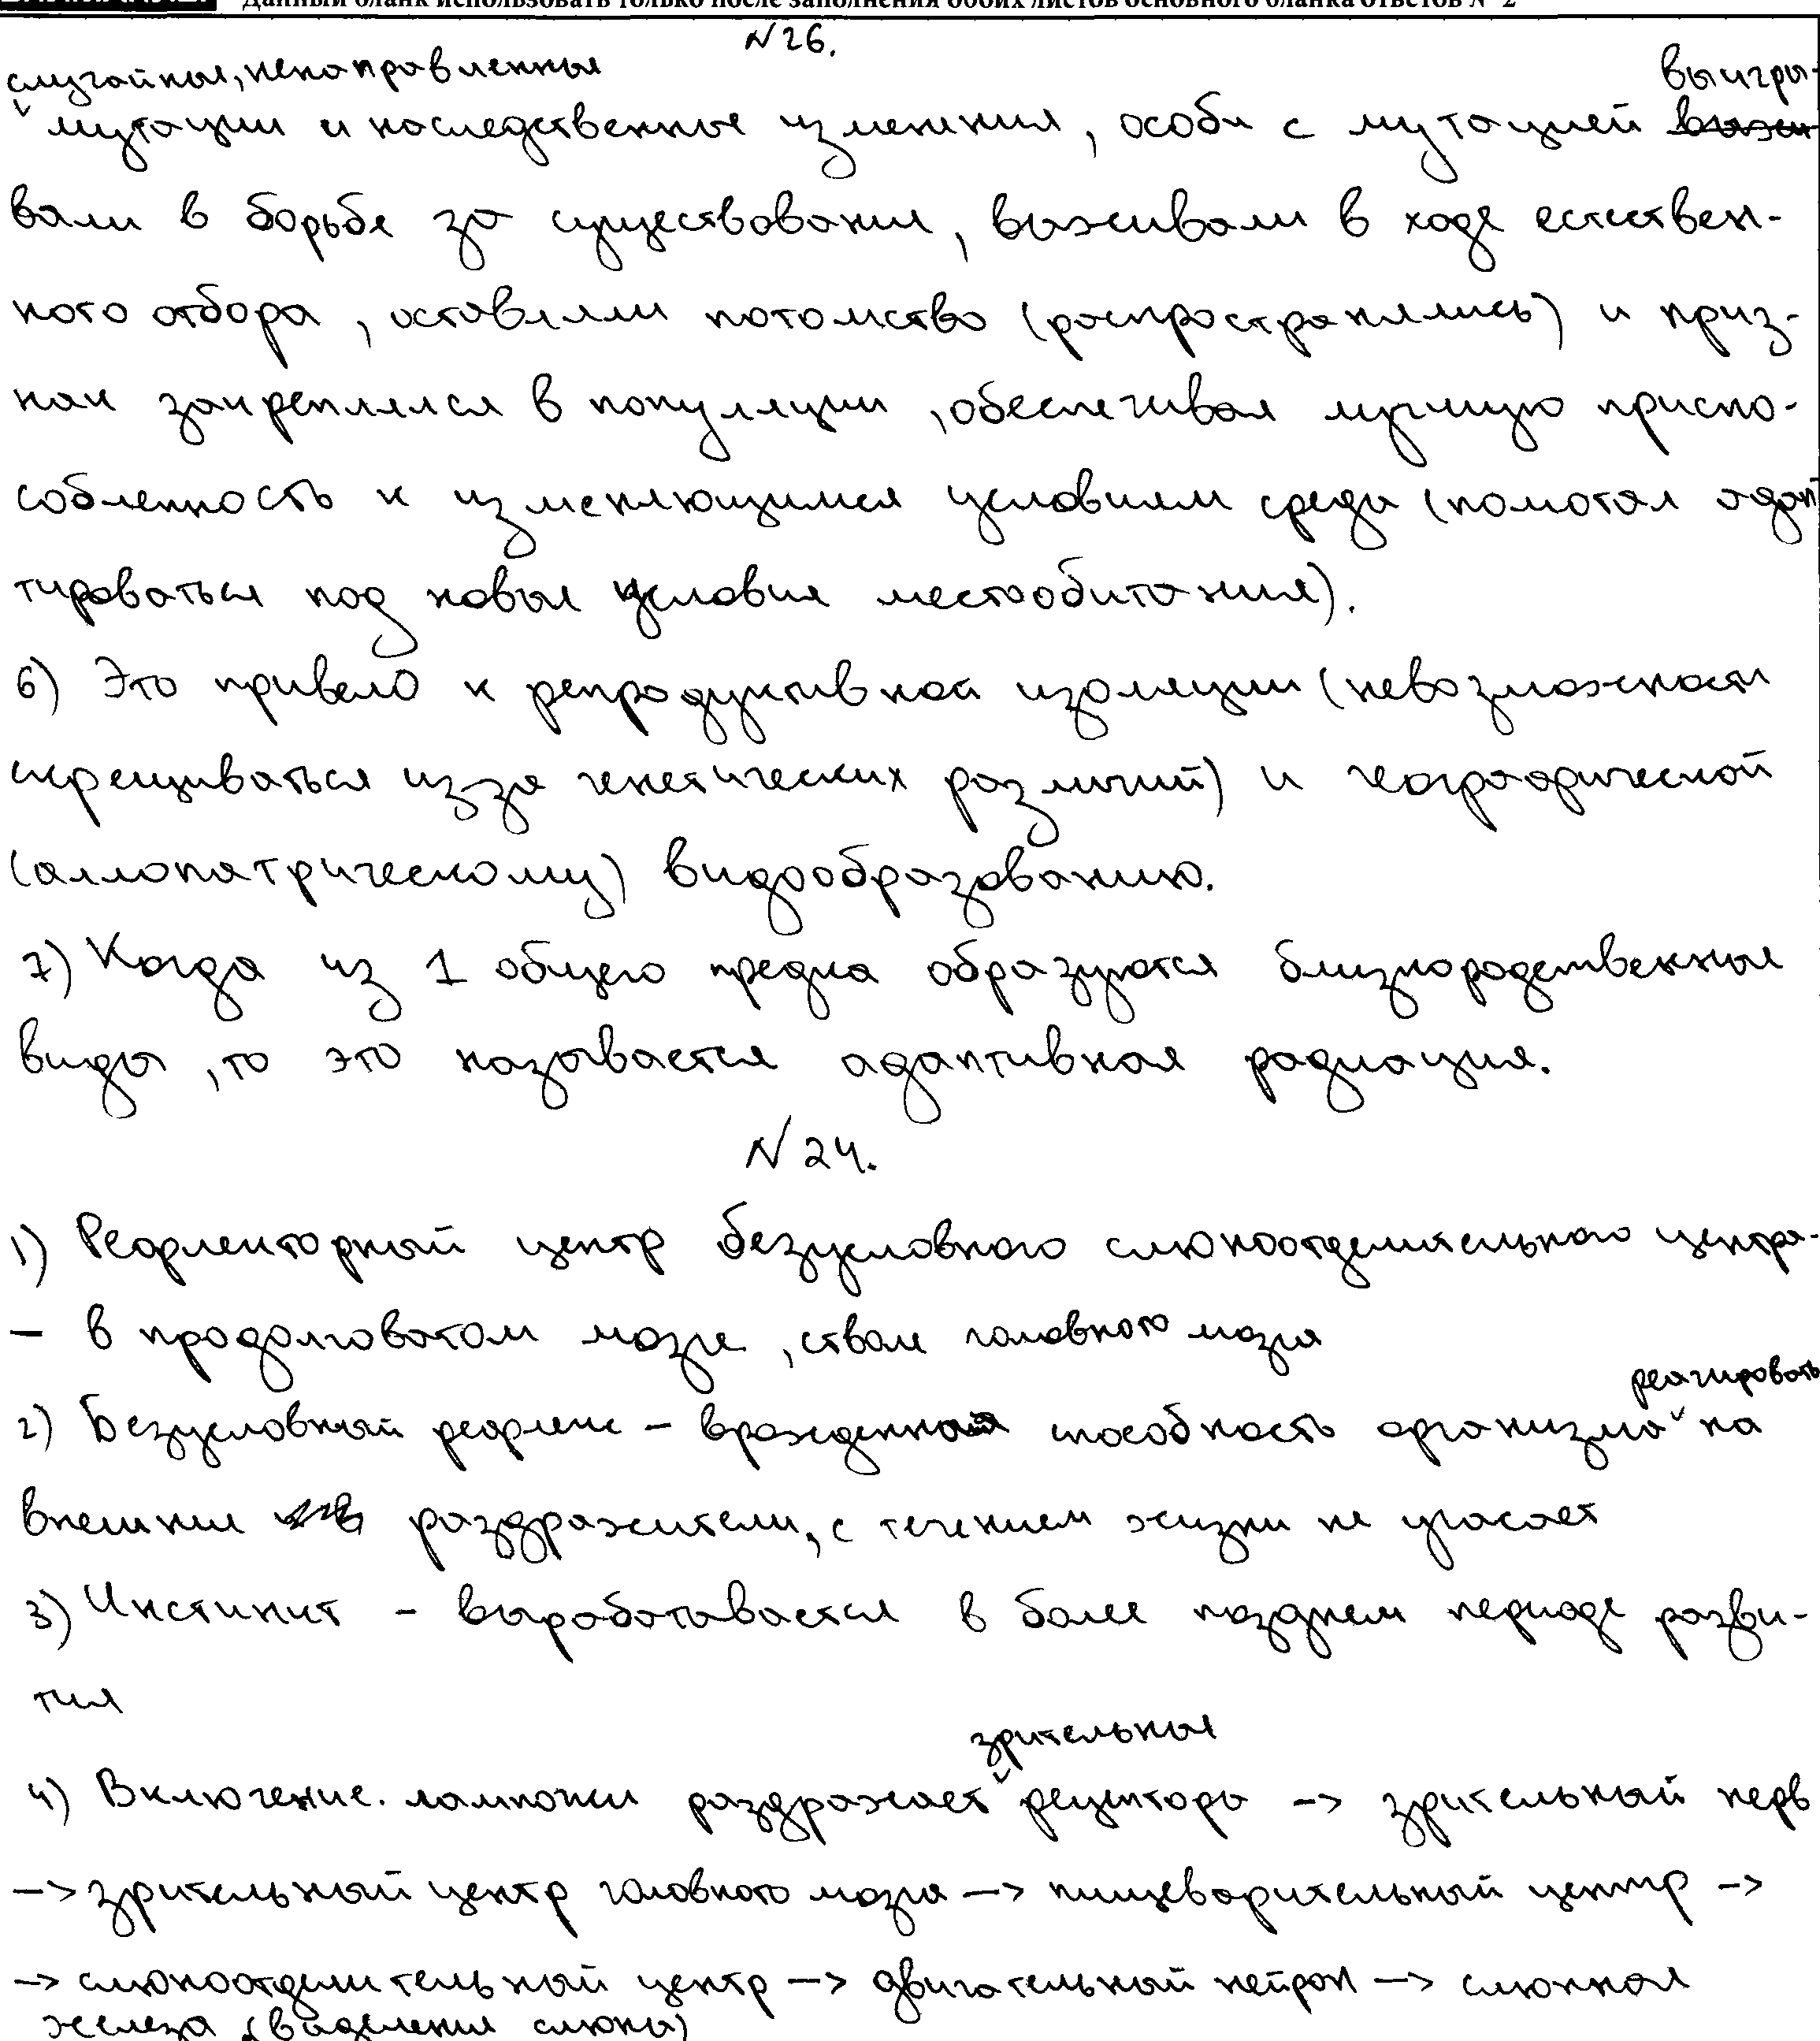 Данный бланк использовать только после заполнения обоих листов основного бланка ответов № 2
N 26.
случайные, ненаправленные
мутации и наследственные изменения, особи с мутацией выигры-
вали в борьбе за существование, выживали в ходе естествен-
ного отбора, оставляли потомство (распространялись) и приз-
нак закреплялся в популяции, обеспечивая лучшую приспо-
собленность к изменяющимся условиям среды (помогая адап
тироваться под новые условия местообитания).
6) Это привело к репродуктивной изоляции (невозможности
скрещиваться из-за генетических различий) и географической
(аллопатрическому) видообразованию.
7) Когда из 1 общего предка образуются близкородственные
виды, то это называется адаптивная радиация.
N 24.
1) Рефлекторный центр безусловного слюноотделительного центра-
– в продолговатом мозге, стволе головного мозга
2) Безусловный рефлекс – врожденная способность организма реагировать на
внешние раздражители, с течением жизни не угасает
3) Инстинкт – вырабатывается в более позднем периоде разви-
тия
4) Включение. лампочки раздражает зрительные рецепторы –> зрительный нерв
–> зрительный центр головного мозга –> пищеварительный центр –>
–> слюноотделительный центр –> двигательный нейрон –> слюнная
железа (выделения слюны)